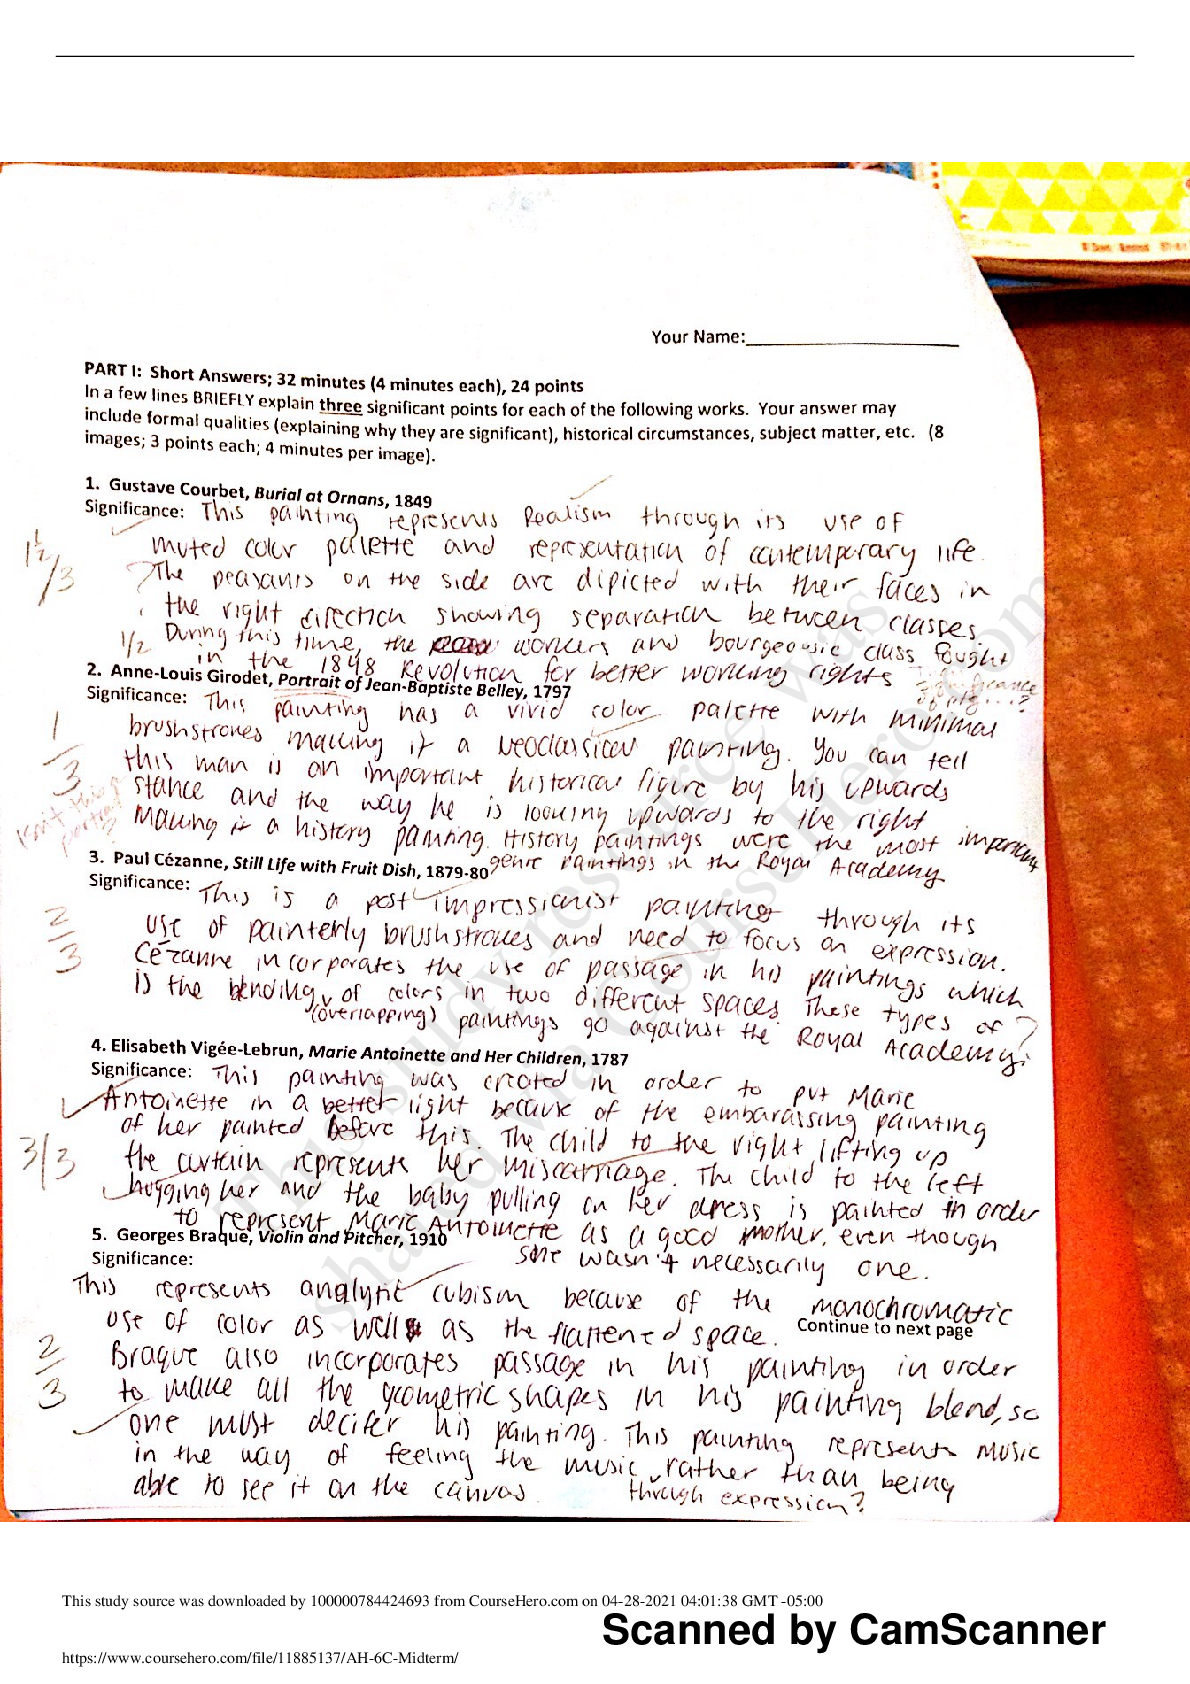 Your Name:
PART I: Short Answers; 32 minutes (4 minutes each), 24 points
In a few lines BRIEFLY explain three significant points for each of the following works. Your answer may
include formal qualities (explaining why they are significant), historical circumstances, subject matter, etc. (8
images; 3 points each; 4 minutes per image).
1. Gustave Courbet, Burial at Ornans, 1849
Significance: This painting represents Realism through its use of
muted color palette and representation of contemporary life.
1 1/2/3
? The peasants on the side are dipicted with their faces in
the right direction showing separation between classes.
1/2 During this time, the workers and bourgeousie class fought
in the 1848 Revolution for better working rights
2. Anne-Louis Girodet, Portrait of Jean-Baptiste Belley, 1797
Significance: This painting has a vivid color palette with minimal
brushstrokes making it a Neoclassical painting. You can tell
1/3
this man is an important historical figure by his upwards
stance and the way he is looking upwards to the right
making it a history painting. History paintings were the most important
genre paintings in the Royal Academy
3. Paul Cézanne, Still Life with Fruit Dish, 1879-80
Significance: This is a post impressionist painting through its
2/3
use of painterly brushstrokes and need to focus on expression.
Cézanne incorporates the use of passage in his paintings which
is the blending of colors in two different spaces. These types of ?
(overlapping) paintings go against the Royal Academy.
4. Elisabeth Vigée-Lebrun, Marie Antoinette and Her Children, 1787
Significance: This painting was created in order to put Marie
Antoinette in a better light because of the embarassing painting
of her painted before this. The child to the right lifting up
3/3
the curtain represents her miscarriage. The child to the left
hugging her and the baby pulling on her dress is painted in order
to represent Marie Antoinette as a good mother, even though
she wasn't necessarily one.
5. Georges Braque, Violin and Pitcher, 1910
Significance:
This represents analytic cubism because of the monochromatic
use of color as well as the flattened space.
Continue to next page
2/3
Braque also incorporates passage in his painting in order
to make all the geometric shapes in his painting blend, so
one must decifer his painting. This painting represents music
in the way of feeling the music, rather than being
able to see it on the canvas. through expression?
This study source was downloaded by 100000784424693 from CourseHero.com on 04-28-2021 04:01:38 GMT -05:00
Scanned by CamScanner
https://www.coursehero.com/file/11885137/AH-6C-Midterm/
This study resource was
shared via CourseHero.com